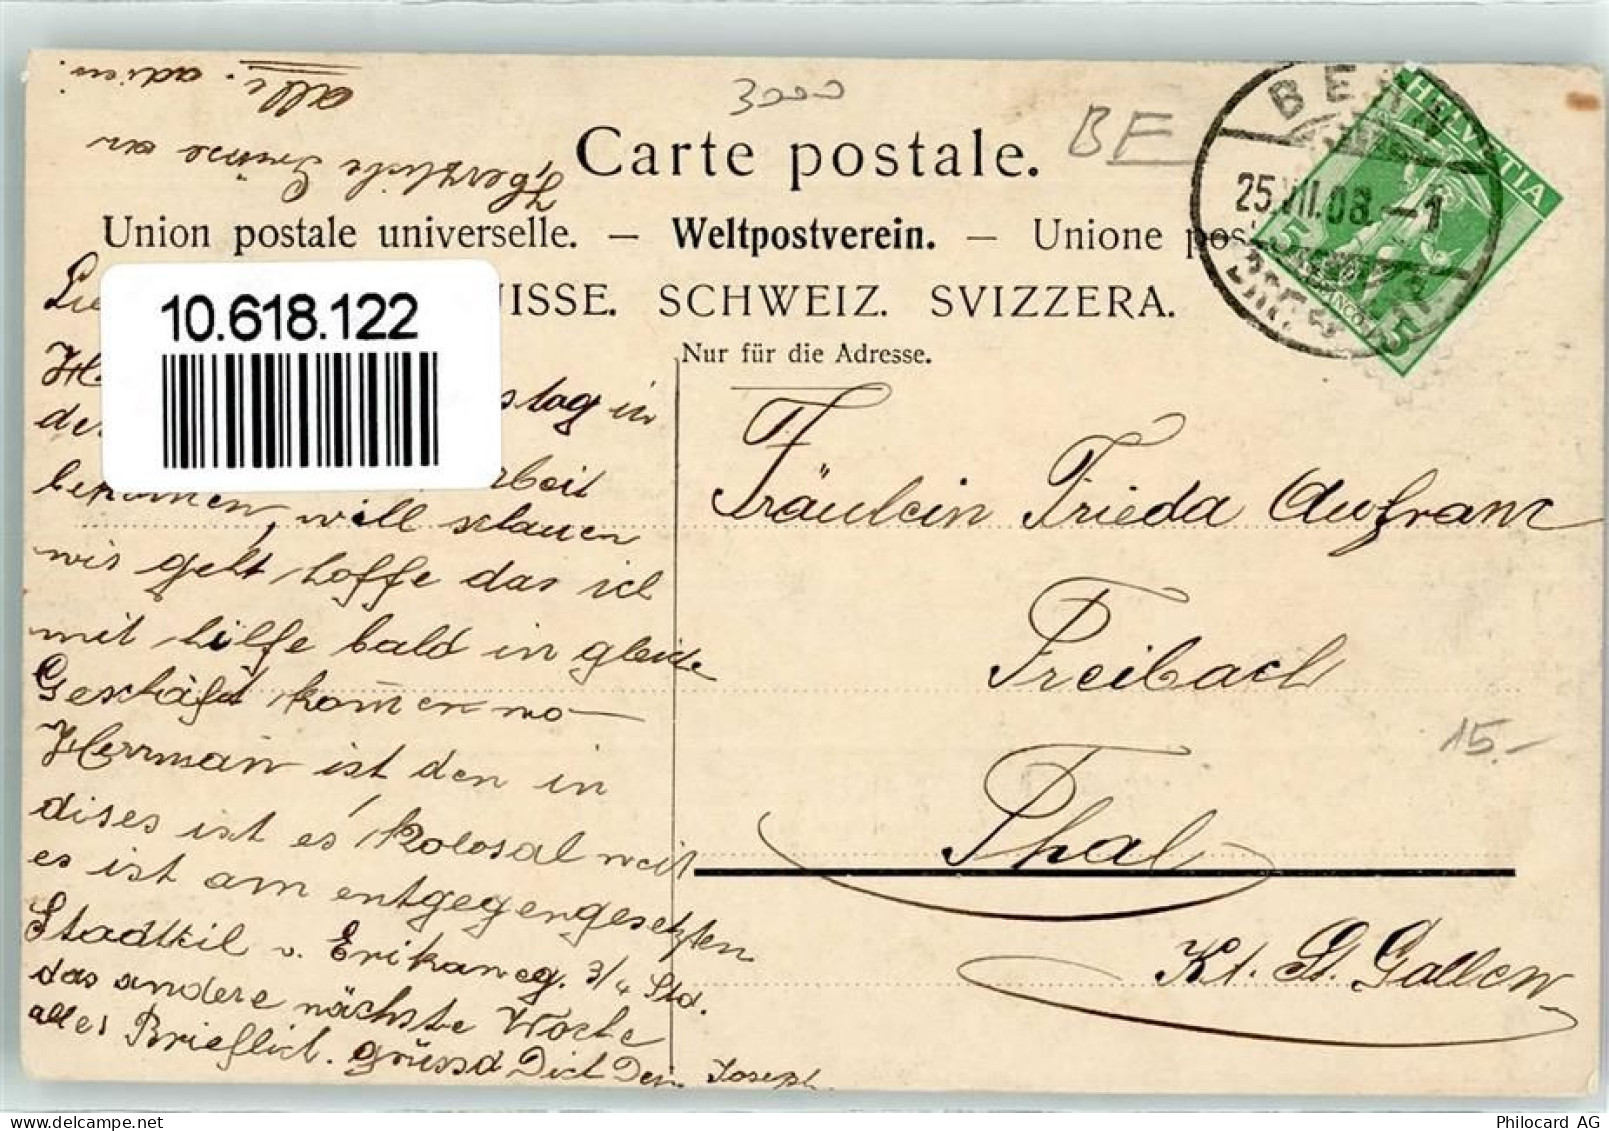 3000
BE
Carte postale.
Union postale universelle. — Weltpostverein. — Unione pos
ISSE. SCHWEIZ. SVIZZERA.
Nur für die Adresse.
10.618.122
BERN
25.VII.08.-1
HELVETIA
FRANCO
5 5
Herzliche Grüsse an
alle. adieu.
Lie
stag in
de
arbeit
bekomen, will schauen
wis geht hoffe das ich
mit hilfe bald in gleiche
Geschäft komen wo
Herrman ist den in
dises ist es kolosal weit
es ist am entgegengesetzten
Stadtteil v. Erikaneg. 3/4 Std.
das andere nächste Woche
alles Brieflich. grüssd Dich Dein Joseph
Fräulein Frieda Aufranc
Freibach
Thal
Kt. St. Gallen
15.-
Philocard AG